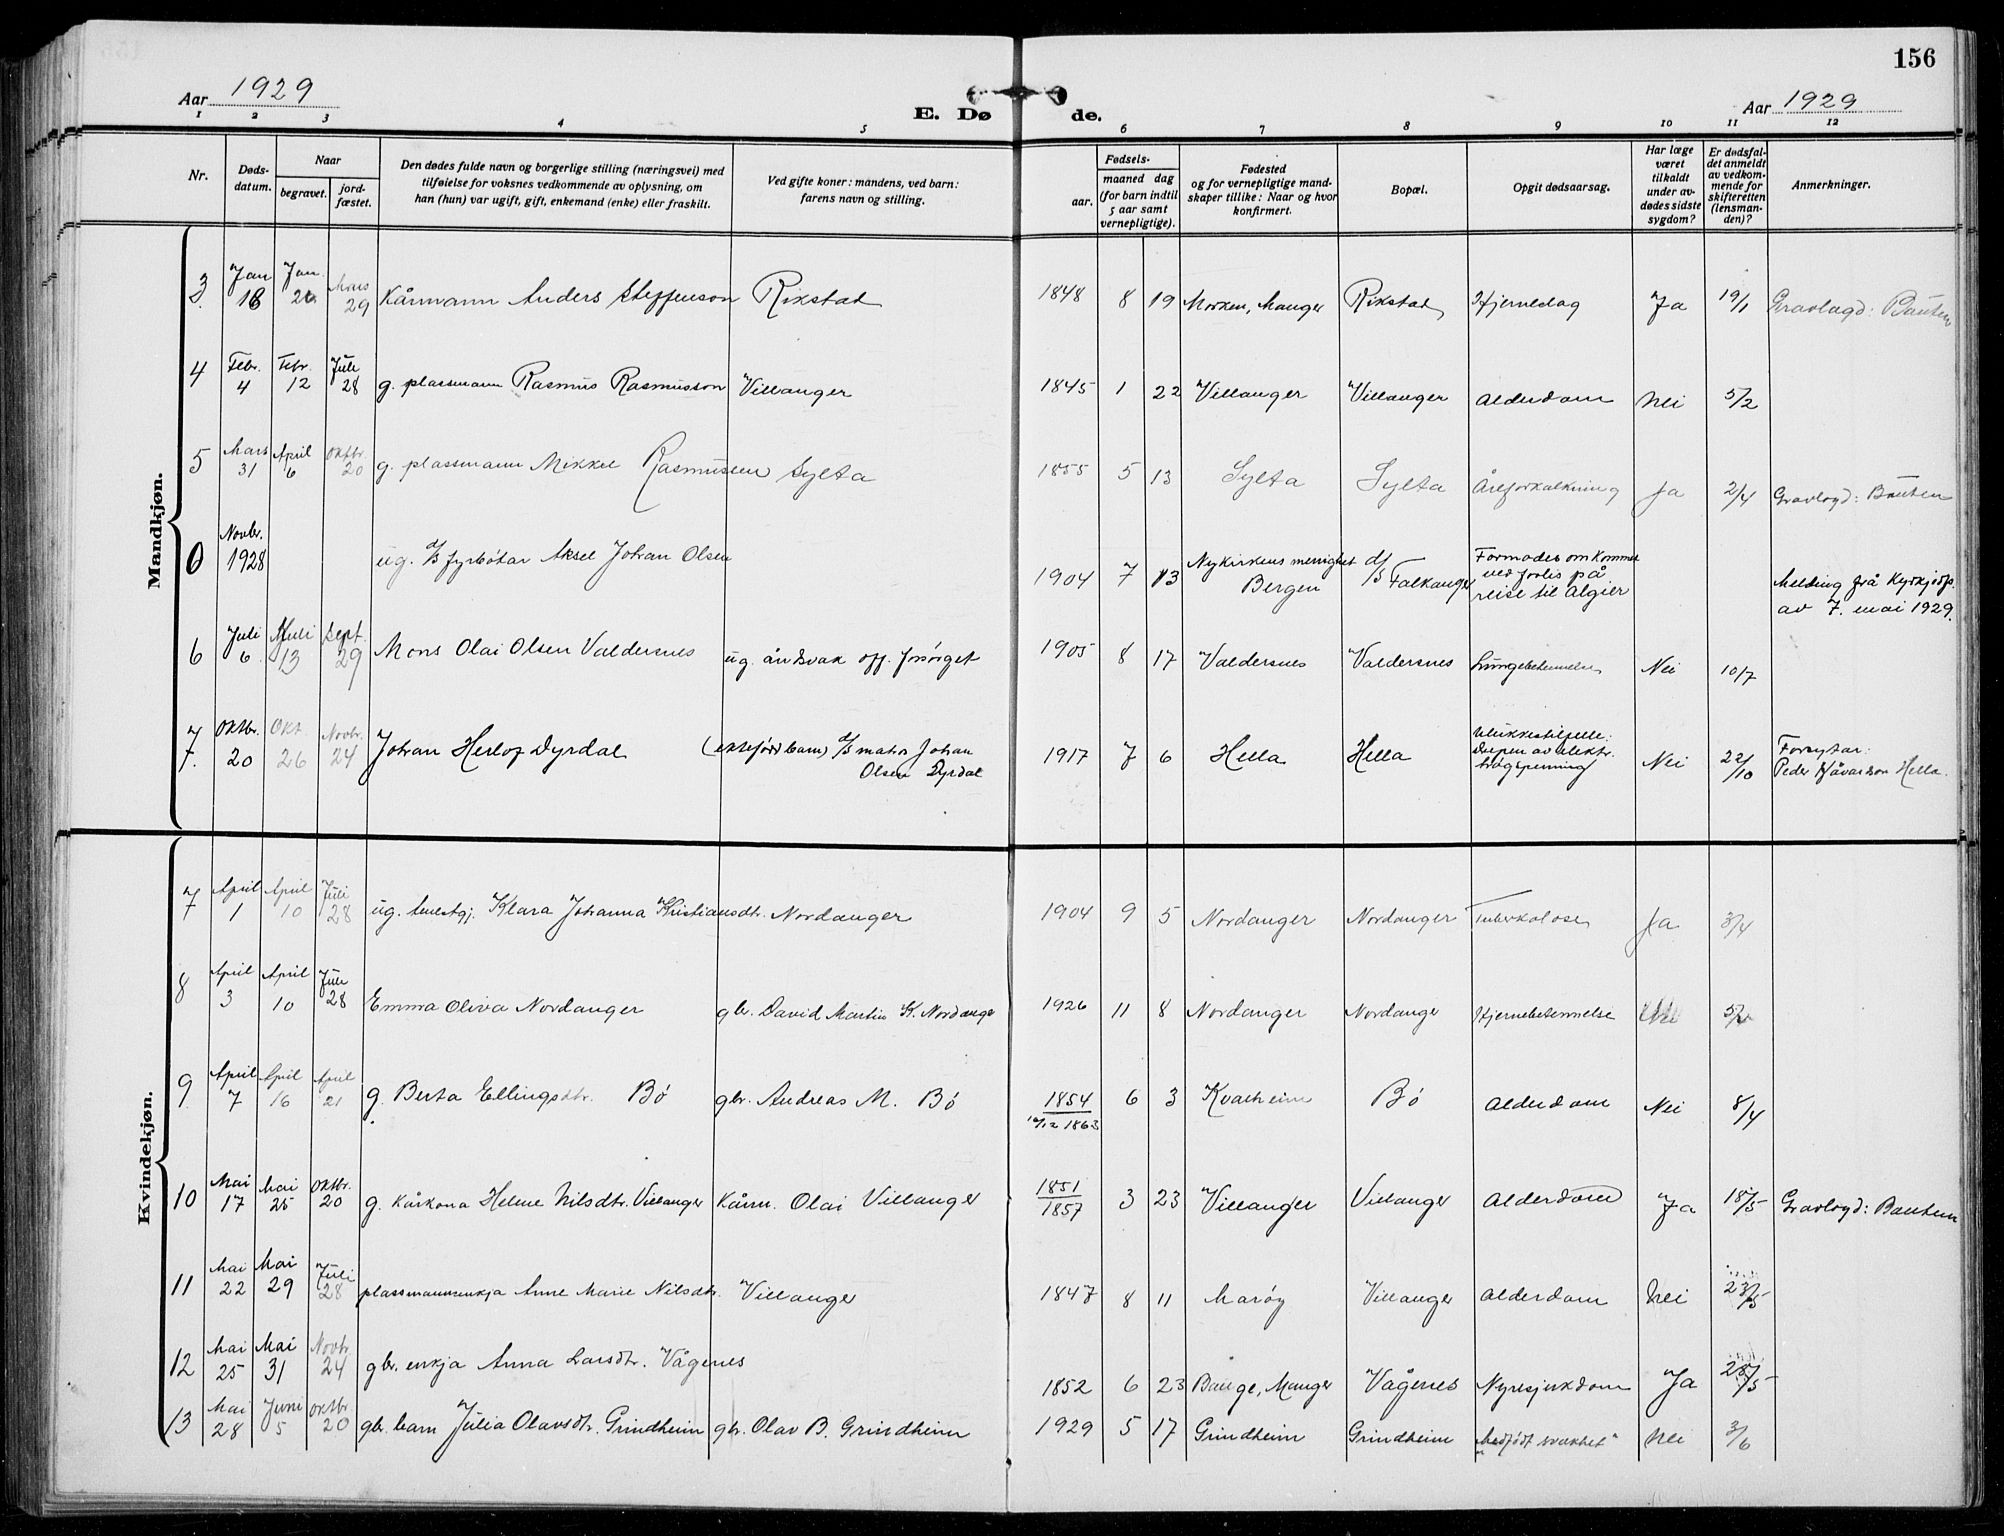 156
Aar 1929
E. Døde.
Aar 1929
1 2 3 4 5 6 7 8 9 10 11 12
Nr.
Døds-
datum.
Naar
begravet.
jord-
fæstet.
Den dødes fulde navn og borgerlige stilling (næringsvei) med
tilføielse for voksnes vedkommende av oplysning, om
han (hun) var ugift, gift, enkemand (enke) eller fraskilt.
Ved gifte koner: mandens, ved barn:
farens navn og stilling.
Fødsels-
aar.
maaned dag
(for barn indtil
5 aar samt
vernepligtige).
Fødested
og for vernepligtige mand-
skaper tillike: Naar og hvor
konfirmert.
Bopæl.
Opgit dødsaarsag.
Har læge
været
tilkaldt
under av-
dødes sidste
sygdom?
Er dødsfal-
det anmeldt
av vedkom-
mende for
skifteretten
(lensman-
den)?
Anmerkninger.
Mandkjøn.
3 Jan 18 Jan. 26 Mars 29 Kårmann Anders Steffenson Rikstad 1848 8 19 Morken, Manger Rikstad Hjerneslag Ja 19/1 Gravlagd: Bauten
4 Febr. 4 Febr. 12 Juli 28 g. plassmann Rasmus Rasmusson Villanger 1845 1 22 Villanger Villanger Alderdom Nei 5/2
5 Mars 31 April 6 Oktbr. 20 g. plassmann Mikkel Rasmussen Sylta 1855 5 13 Sylta Sylta Åreforkalkning Ja 2/4 Gravlagd: Bauten
0 Novbr. 1928 ug. d/s fyrbøtar Aksel Johan Olsen 1904 7 13 Nykirkens menighet Bergen d/s Falkanger Formodes omkommet
ved forlis på
reise til Algier
Melding frå Kyrkjedp.
av 7. mai 1929.
6 Juli 6 Juli 13 Sept. 29 Mons Olai Olsen Valdersnes ug. åndsvak off. forsørget 1905 8 17 Valdersnes Valdersnes Lungebetennelse Nei 10/7
7. Oktbr. 20 Okt. 26 Novbr. 24 Johan Herlof Dyrdal (ektefødd barn) d/s matros Johan
Olsen Dyrdal 1917 7 6 Hella Hella Ulukkestilfelle:
Drepen av elektr.
høgspenning Nei 22/10 Forsytar:
Peder Håvardson Hella.
Kvindekjøn.
7 April 1 April 10 Juli 28 ug. tenestgj. Klara Johanna Kristiansdtr. Nordanger 1904 9 5 Nordanger Nordanger Tuberkolose Ja 3/4
8 April 3 April 10 Juli 28 Emma Oliva Nordanger gbr. David Martin K. Nordanger 1926 11 8 Nordanger Nordanger Hjernebetennelse Nei
9 April 7 April 16 April 21 g. Berta Ellingsdtr. Bø gbr. Andreas M. Bø 1854 6 3 Kvalheim Bø Alderdom Nei 8/4
10/12 1863
10 Mai 17 Mai 25 Oktbr. 20 g. Kårkona Helene Nilsdtr. Villanger Kårm. Olai Villanger 1851 3 23 Villanger Villanger Alderdom Ja 18/5 Gravlagd: Bauten
1857
11 Mai 22 Mai 29 Juli 28 plassmannsenkja Anne Marie Nilsdtr. Villanger 1847 8 11 Marøy Villanger Alderdom Nei 23/5
12 Mai 25 Mai 31 Novbr. 24 gbr. enkja Anna Larsdtr. Vågenes 1852 6 23 Bauge, Manger Vågenes Nyresjukdom Ja 28/5
13 Mai 28 Juni 5 Oktbr. 20 gbr. barn Julia Olavsdtr. Grindheim gbr. Olav B. Grindheim 1929 5 17 Grindheim Grindheim "Medfødt svakhet" Nei 3/6